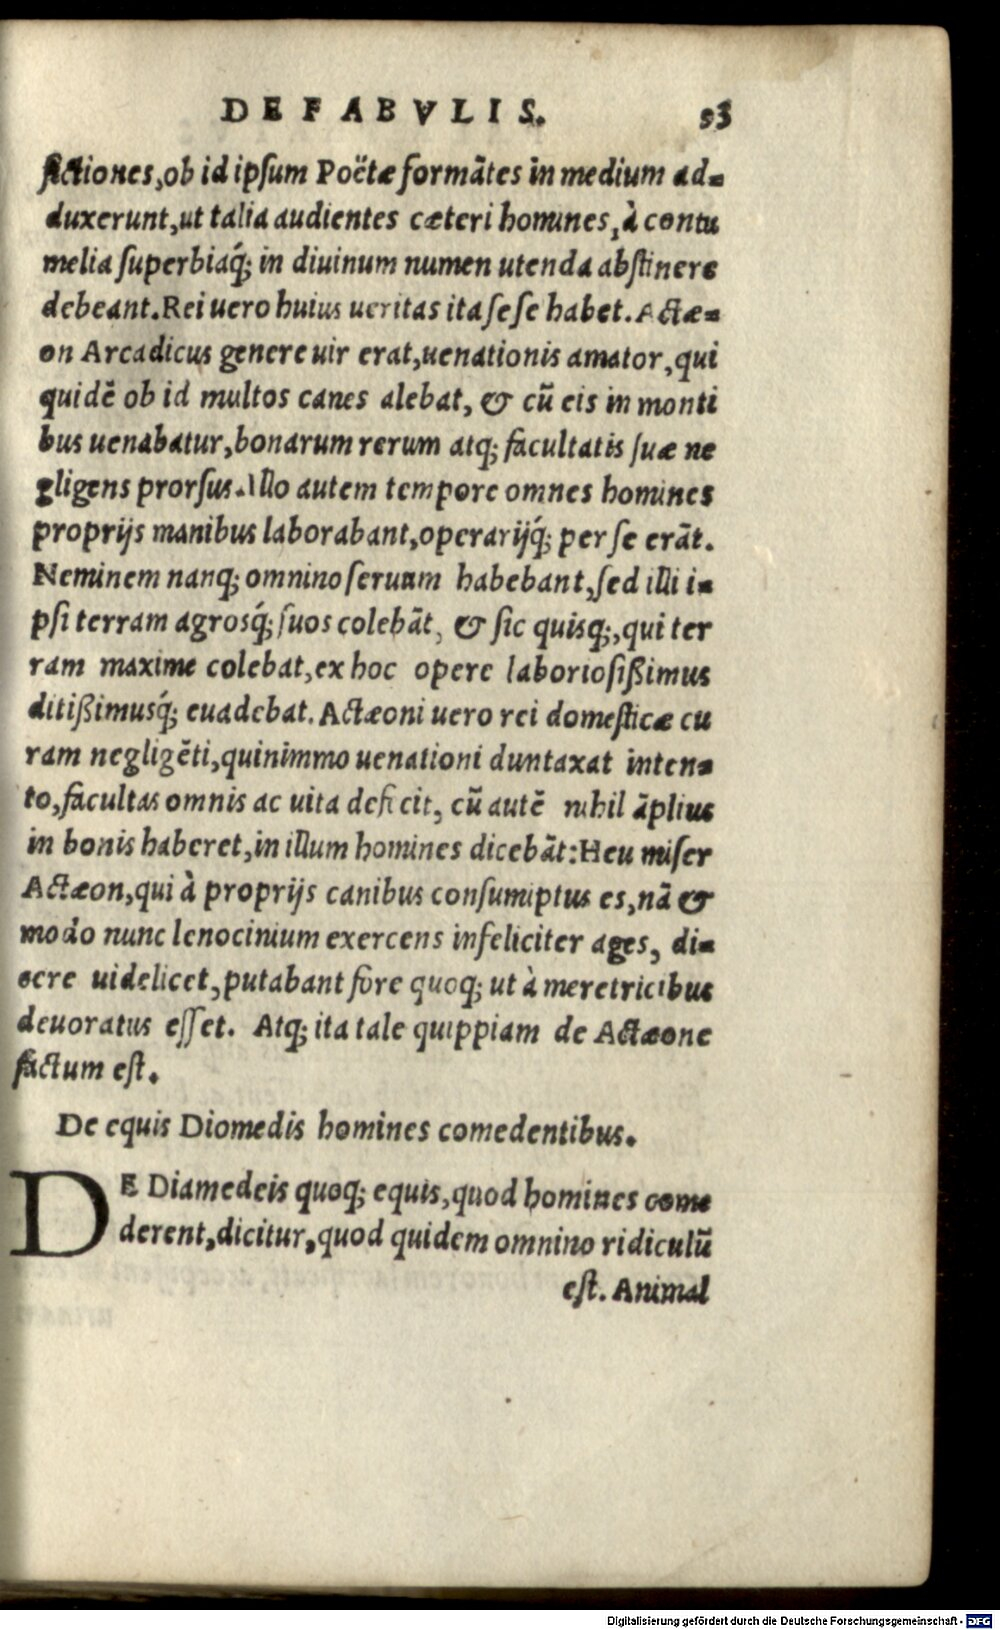 DE FABVLIS. 53
fictiones, ob id ipsum Poëtæ formãtes in medium ad-
duxerunt, ut talia audientes cæteri homines, à contu
melia superbiaq́; in diuinum numen utenda abstinere
debeant. Rei uero huius ueritas ita sese habet. Actæ-
on Arcadicus genere uir erat, uenationis amator, qui
quidẽ ob id multos canes alebat, & cũ eis in monti
bus uenabatur, bonarum rerum atq; facultatis suæ ne
gligens prorsus. Illo autem tempore omnes homines
proprijs manibus laborabant, operarijq́; per se erãt.
Neminem nanq; omnino seruum habebant, sed illi i-
psi terram agrosq́; suos colebãt, & sic quisq;, qui ter
ram maxime colebat, ex hoc opere laboriosißimus
ditißimusq́; euadebat. Actæoni uero rei domesticæ cu
ram negligẽti, quinimmo uenationi duntaxat inten-
to, facultas omnis ac uita deficit, cũ autẽ nihil ãplius
in bonis haberet, in illum homines dicebãt: Heu miser
Actæon, qui à proprijs canibus consumptus es, nã &
modo nunc lenocinium exercens infeliciter ages, di-
cere uidelicet, putabant fore quoq; ut à meretricibus
deuoratus esset. Atq; ita tale quippiam de Actæone
factum est.
De equis Diomedis homines comedentibus.
DE Diamedeis quoq; equis, quod homines come
derent, dicitur, quod quidem omnino ridiculũ
est. Animal
Digitalisierung gefördert durch die Deutsche Forschungsgemeinschaft - DFG